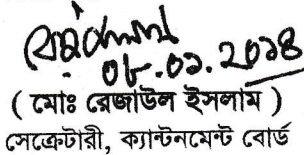 ০৮.০১.২০১৪
( মোঃ রেজাউল ইসলাম )
সেক্রেটারী, ক্যান্টনমেন্ট বোর্ড